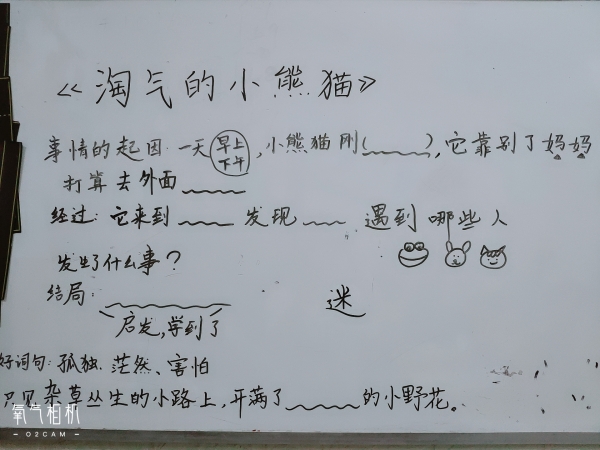 《淘气的小熊猫》
事情的起因 一天早上下午,小熊猫刚(),它靠别了妈妈
打算去外面
经过:它来到 发现 遇到哪些人
发生了什么事?
结局:
启发,学到了
迷
好词句:孤独.茫然、害怕
只见杂草丛生的小路上,开满了 的小野花。
氧气相机
O2CAM